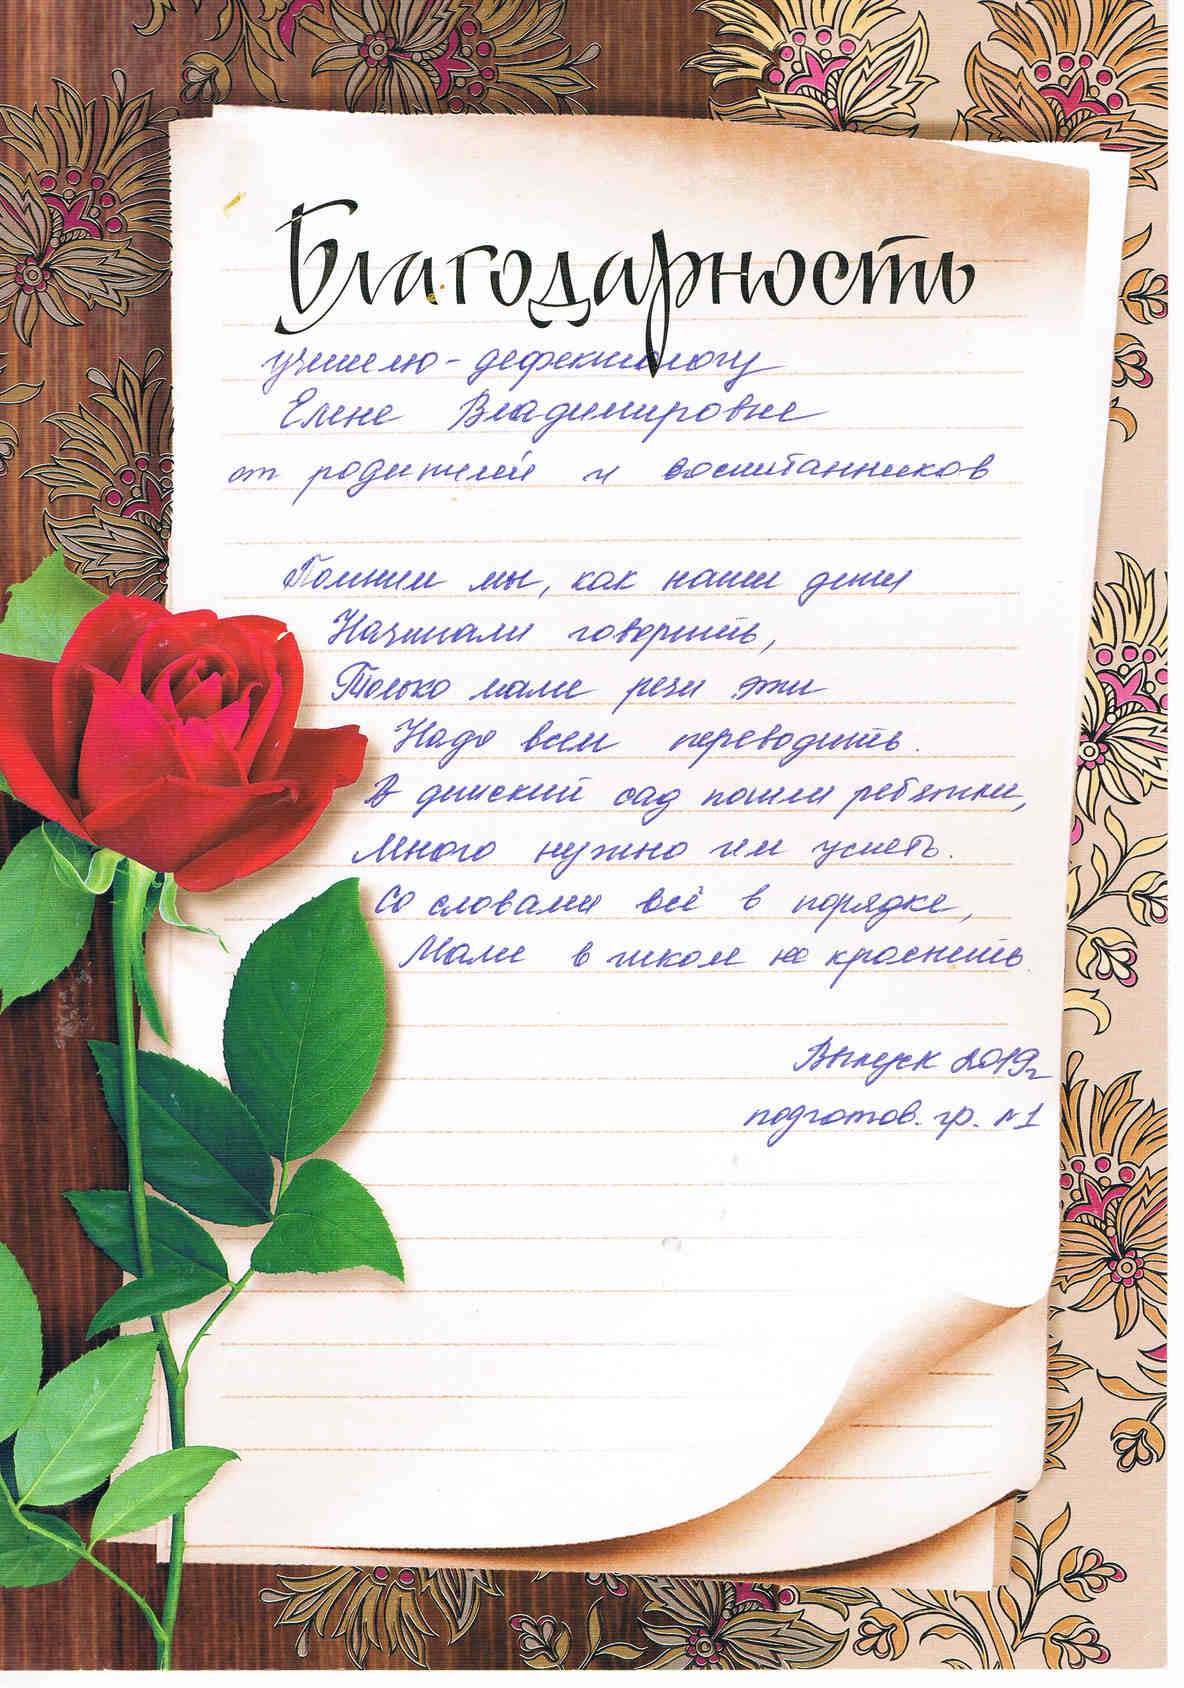 Благодарность
учителю-дефектологу
Елене Владимировне
от родителей и воспитанников
Помним мы, как наши дети
Начинали говорить,
Только маме речи эти
Надо всем переводить.
В детский сад пошли ребятки,
Много нужно им успеть.
Со словами всё в порядке,
Маме в школе не краснеть.
Выпуск 2019г
подготов. гр. №1